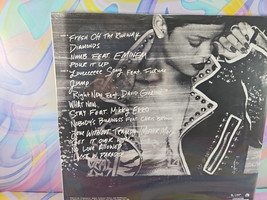 Fresh Off the Runway
Diamonds
Numb feat. Eminem
Pour It Up
Loveeeeeee Song feat. Future
Jump
Right Now feat. David Guetta
What Now
Stay feat. Mikky Ekko
Nobody's Business feat. Chris Brown
Love Without Tragedy
Get It Over With
No Love Allowed
Lost in Paradise